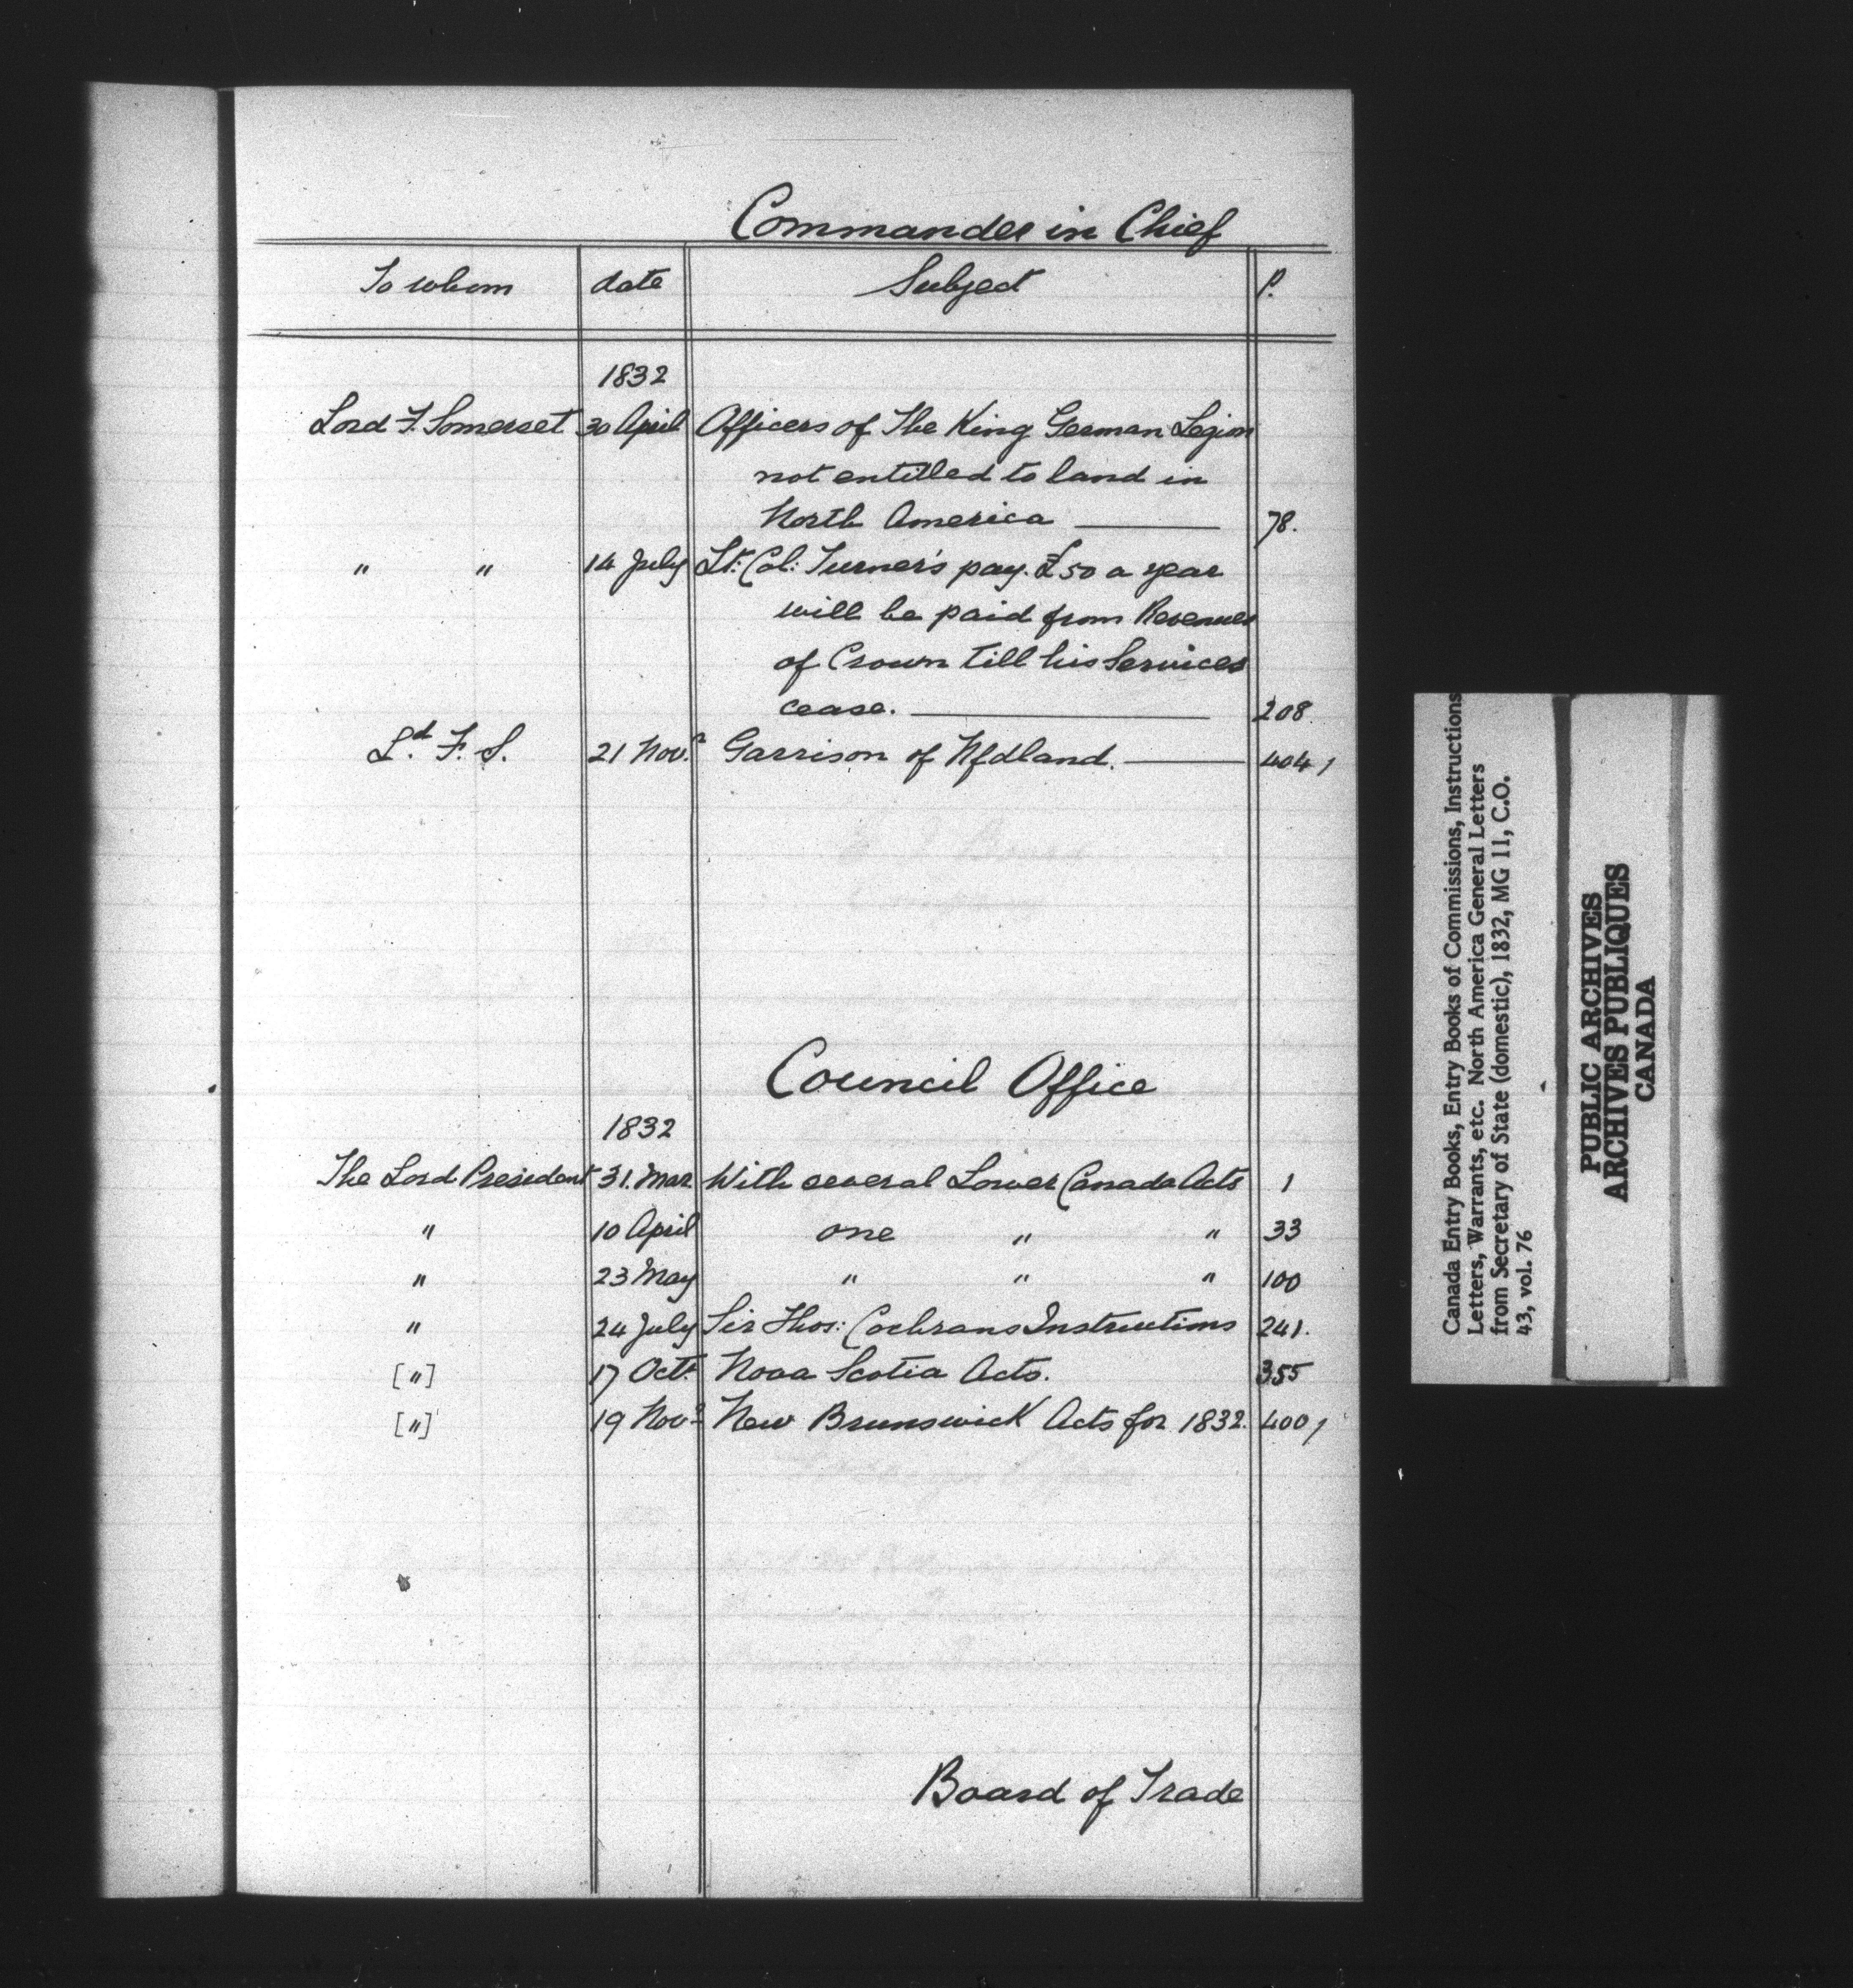 Commander in Chief
To whom date Subject P.
1832
Lord F. Somerset 30 April Officers of The King German Legion
not entitled to land in
North America 78.
" " 14 July Lt: Col: Turner's pay. £50 a year
will be paid from Revenues
of Crown till his Services
cease. 208.
Ld. F. S. 21 Novr. Garrison of Nfdland. 404,
Council Office
1832
The Lord President 31. Mar. With several Lower Canada Acts 1
" 10 April one " " 33
" 23 May " " " 100
" 24 July Sir Thos: Cochrans Instructions 241.
["] 17 Octr. Nova Scotia Acts. 355
["] 19 Novr. New Brunswick Acts for 1832. 400,
Board of Trade
Canada Entry Books, Entry Books of Commissions, Instructions
Letters, Warrants, etc. North America General Letters
from Secretary of State (domestic), 1832, MG 11, C.O.
43, vol. 76
PUBLIC ARCHIVES
ARCHIVES PUBLIQUES
CANADA